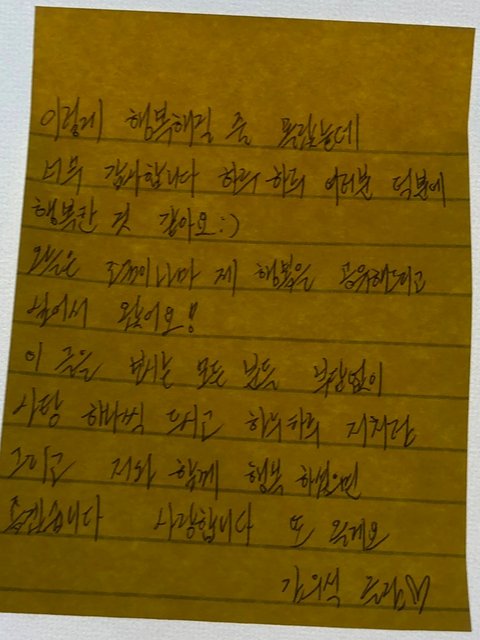 이렇게 행복해질 줄 몰랐는데
너무 감사합니다 하루 하루 여러분 덕분에
행복한 것 같아요:)
오늘은 조금이나마 제 행복을 공유해드리고
싶어서 왔어요!
이 글을 보시는 모든 분들 부담없이
사탕 하나씩 드시고 하루하루 지치지말
그리고 저와 함께 행복 하셨으면
좋겠습니다 사랑합니다 또 올게요
김의석 드림♡